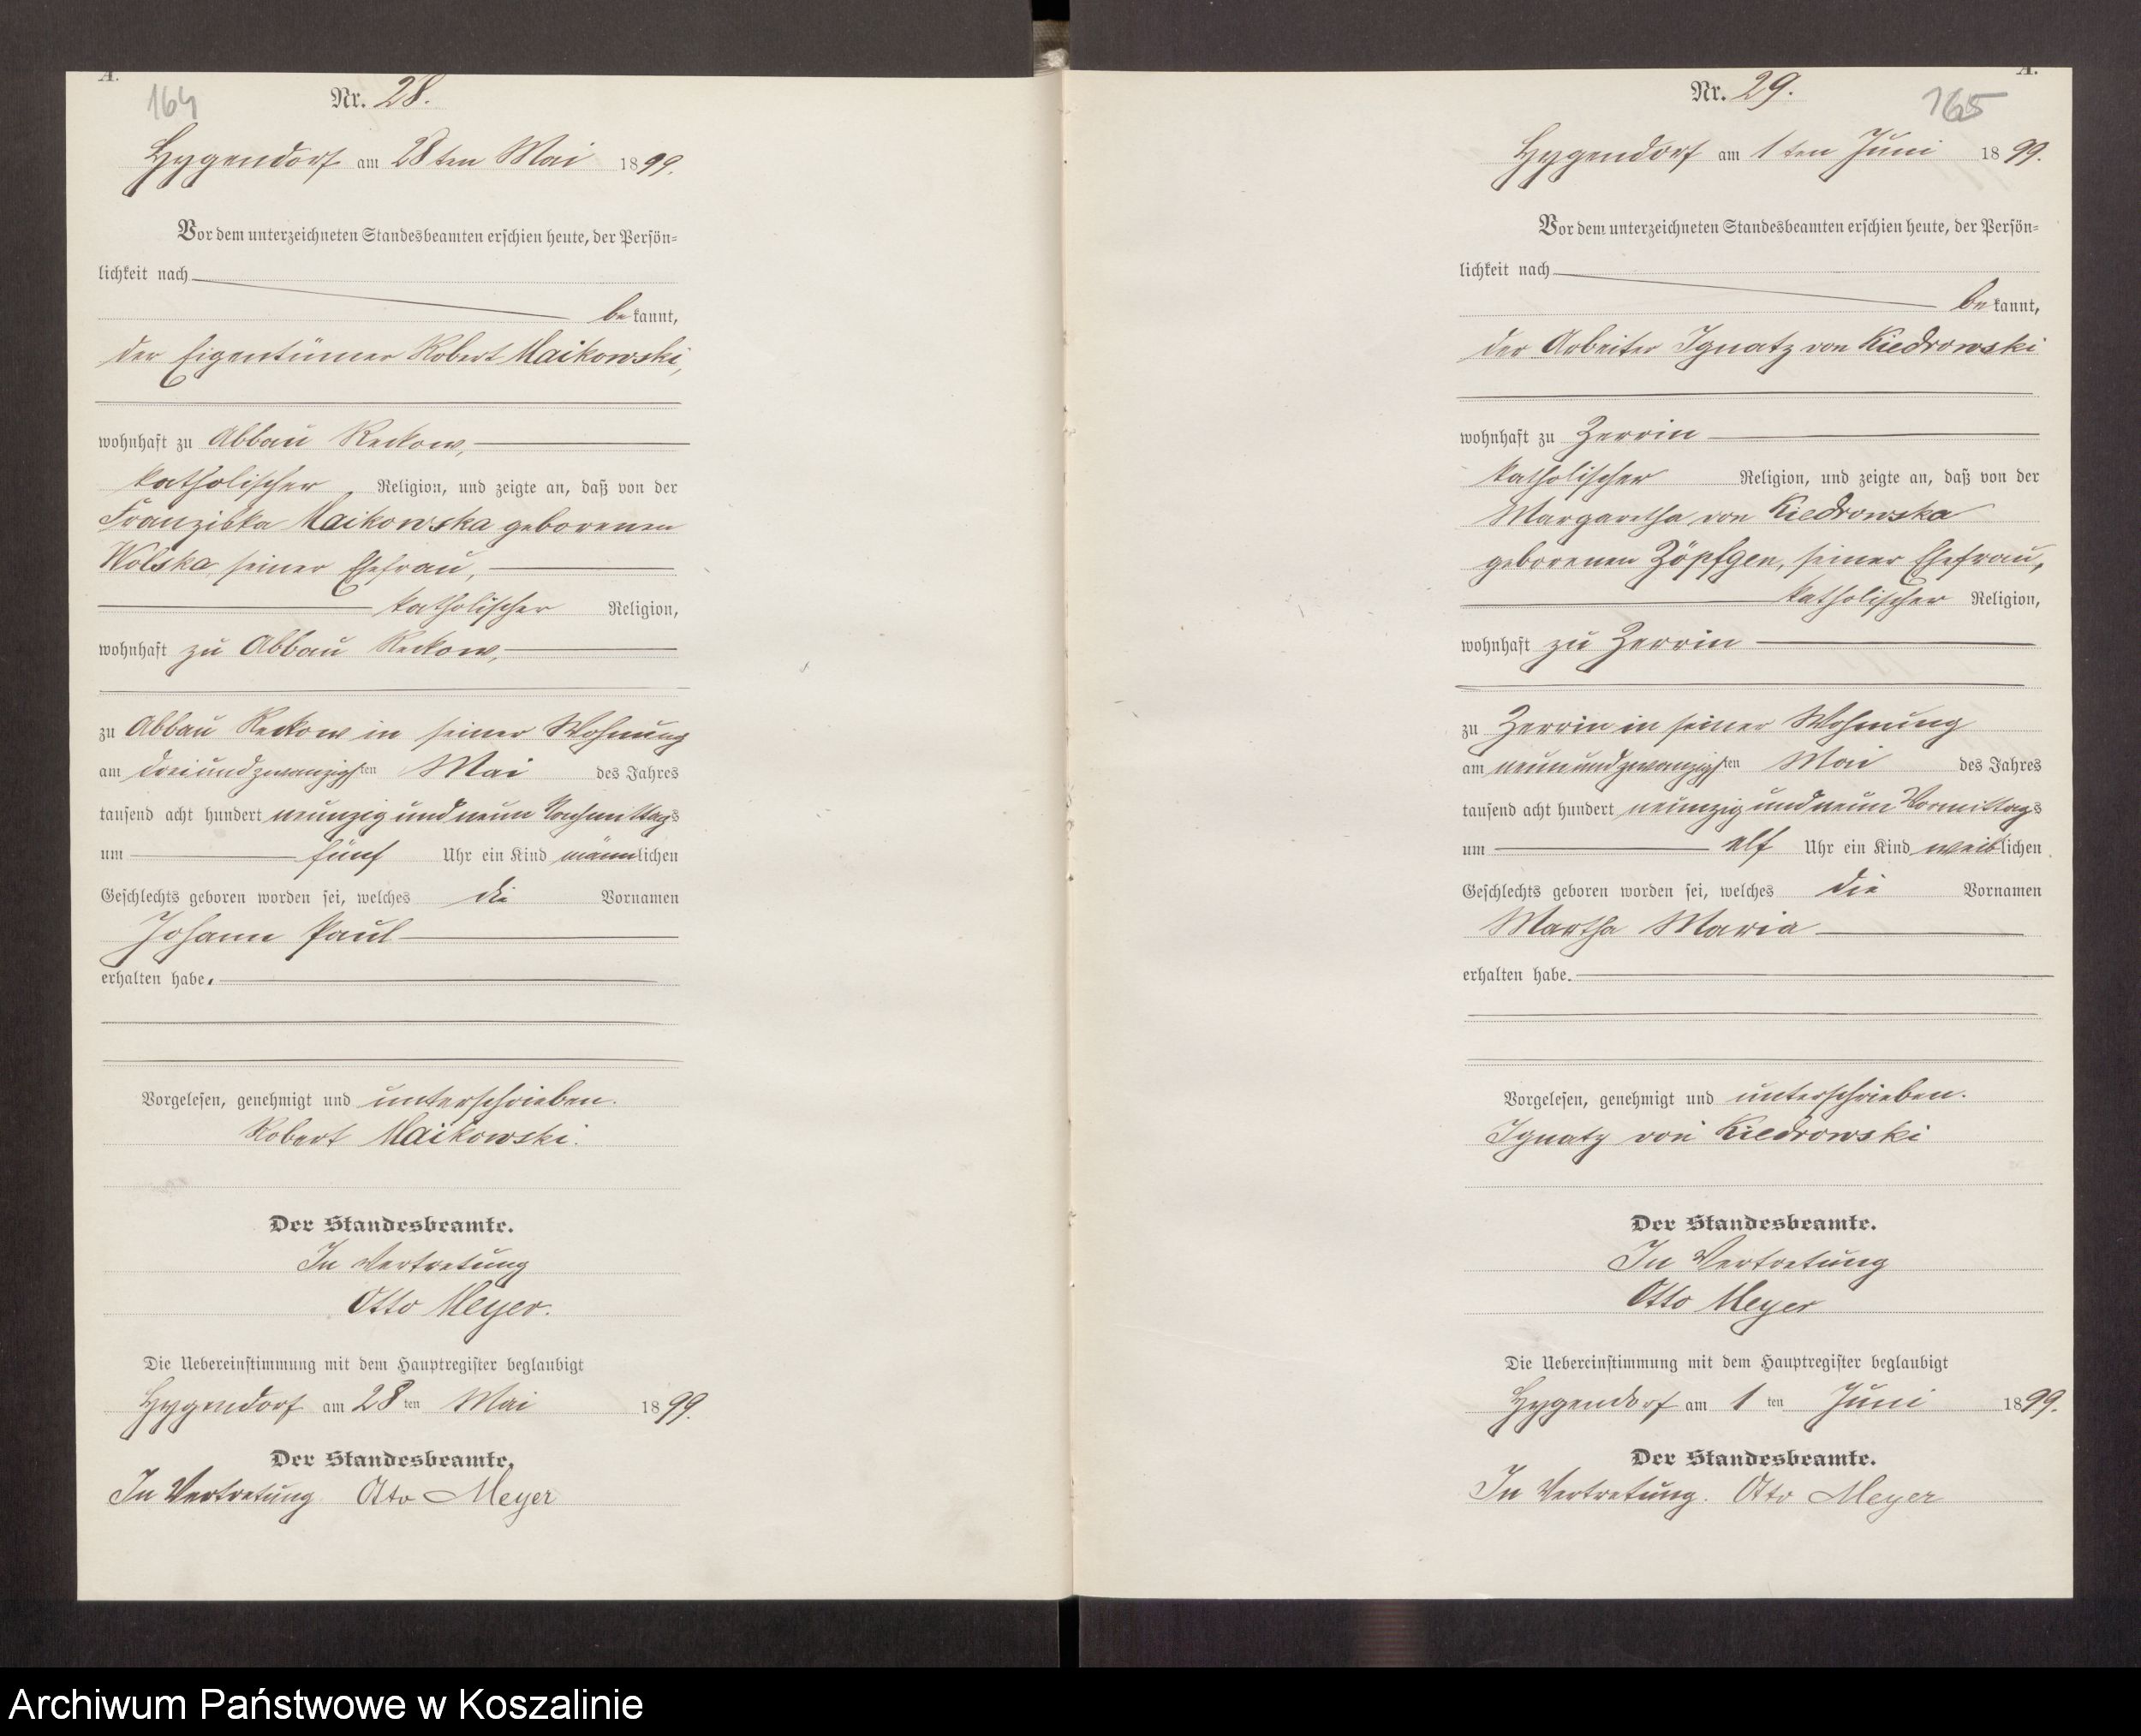 A.
164
Nr. 28.
Hygendorf am 28ten Mai 1899.
Vor dem unterzeichneten Standesbeamten erschien heute, der Persön=
lichkeit nach
bekannt,
der Eigentümer Robert Maikowski,
wohnhaft zu Abbau Reckow,
katholischer Religion, und zeigte an, daß von der
Franziska Maikowska geborenen
Wolska, seiner Ehefrau,
katholischer Religion,
wohnhaft zu Abbau Reckow,
zu Abbau Reckow in seiner Wohnung
am dreiundzwanzigsten Mai des Jahres
tausend acht hundert neunzig und neun Nachmittags
um fünf Uhr ein Kind männlichen
Geschlechts geboren worden sei, welches die Vornamen
Johann Paul
erhalten habe.
Vorgelesen, genehmigt und unterschrieben.
Robert Maikowski.
Der Standesbeamte.
In Vertretung
Otto Meyer.
Die Uebereinstimmung mit dem Hauptregister beglaubigt
Hygendorf am 28ten Mai 1899.
Der Standesbeamte.
In Vertretung Otto Meyer
A.
165
Nr. 29.
Hygendorf am 1ten Juni 1899.
Vor dem unterzeichneten Standesbeamten erschien heute, der Persön=
lichkeit nach
bekannt,
der Arbeiter Ignatz von Kiedrowski
wohnhaft zu Zerrin
katholischer Religion, und zeigte an, daß von der
Margaretha von Kiedrowska
geborenen Zöpfgen, seiner Ehefrau,
katholischer Religion,
wohnhaft zu Zerrin
zu Zerrin in seiner Wohnung
am neunundzwanzigsten Mai des Jahres
tausend acht hundert neunzig und neun Vormittags
um elf Uhr ein Kind weiblichen
Geschlechts geboren worden sei, welches die Vornamen
Martha Maria
erhalten habe.
Vorgelesen, genehmigt und unterschrieben.
Ignatz von Kiedrowski
Der Standesbeamte.
In Vertretung
Otto Meyer
Die Uebereinstimmung mit dem Hauptregister beglaubigt
Hygendorf am 1ten Juni 1899.
Der Standesbeamte.
In Vertretung. Otto Meyer
Archiwum Państwowe w Koszalinie